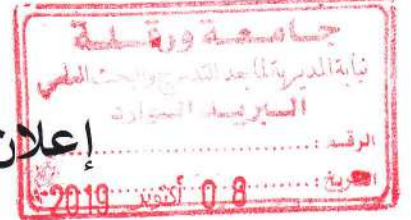 جامعة ورقلة
نيابة المديرية لما بعد التدرج والبحث العلمي
البريد الوارد
إعلان
الرقم :
التاريخ :
08 أكتوبر 2019